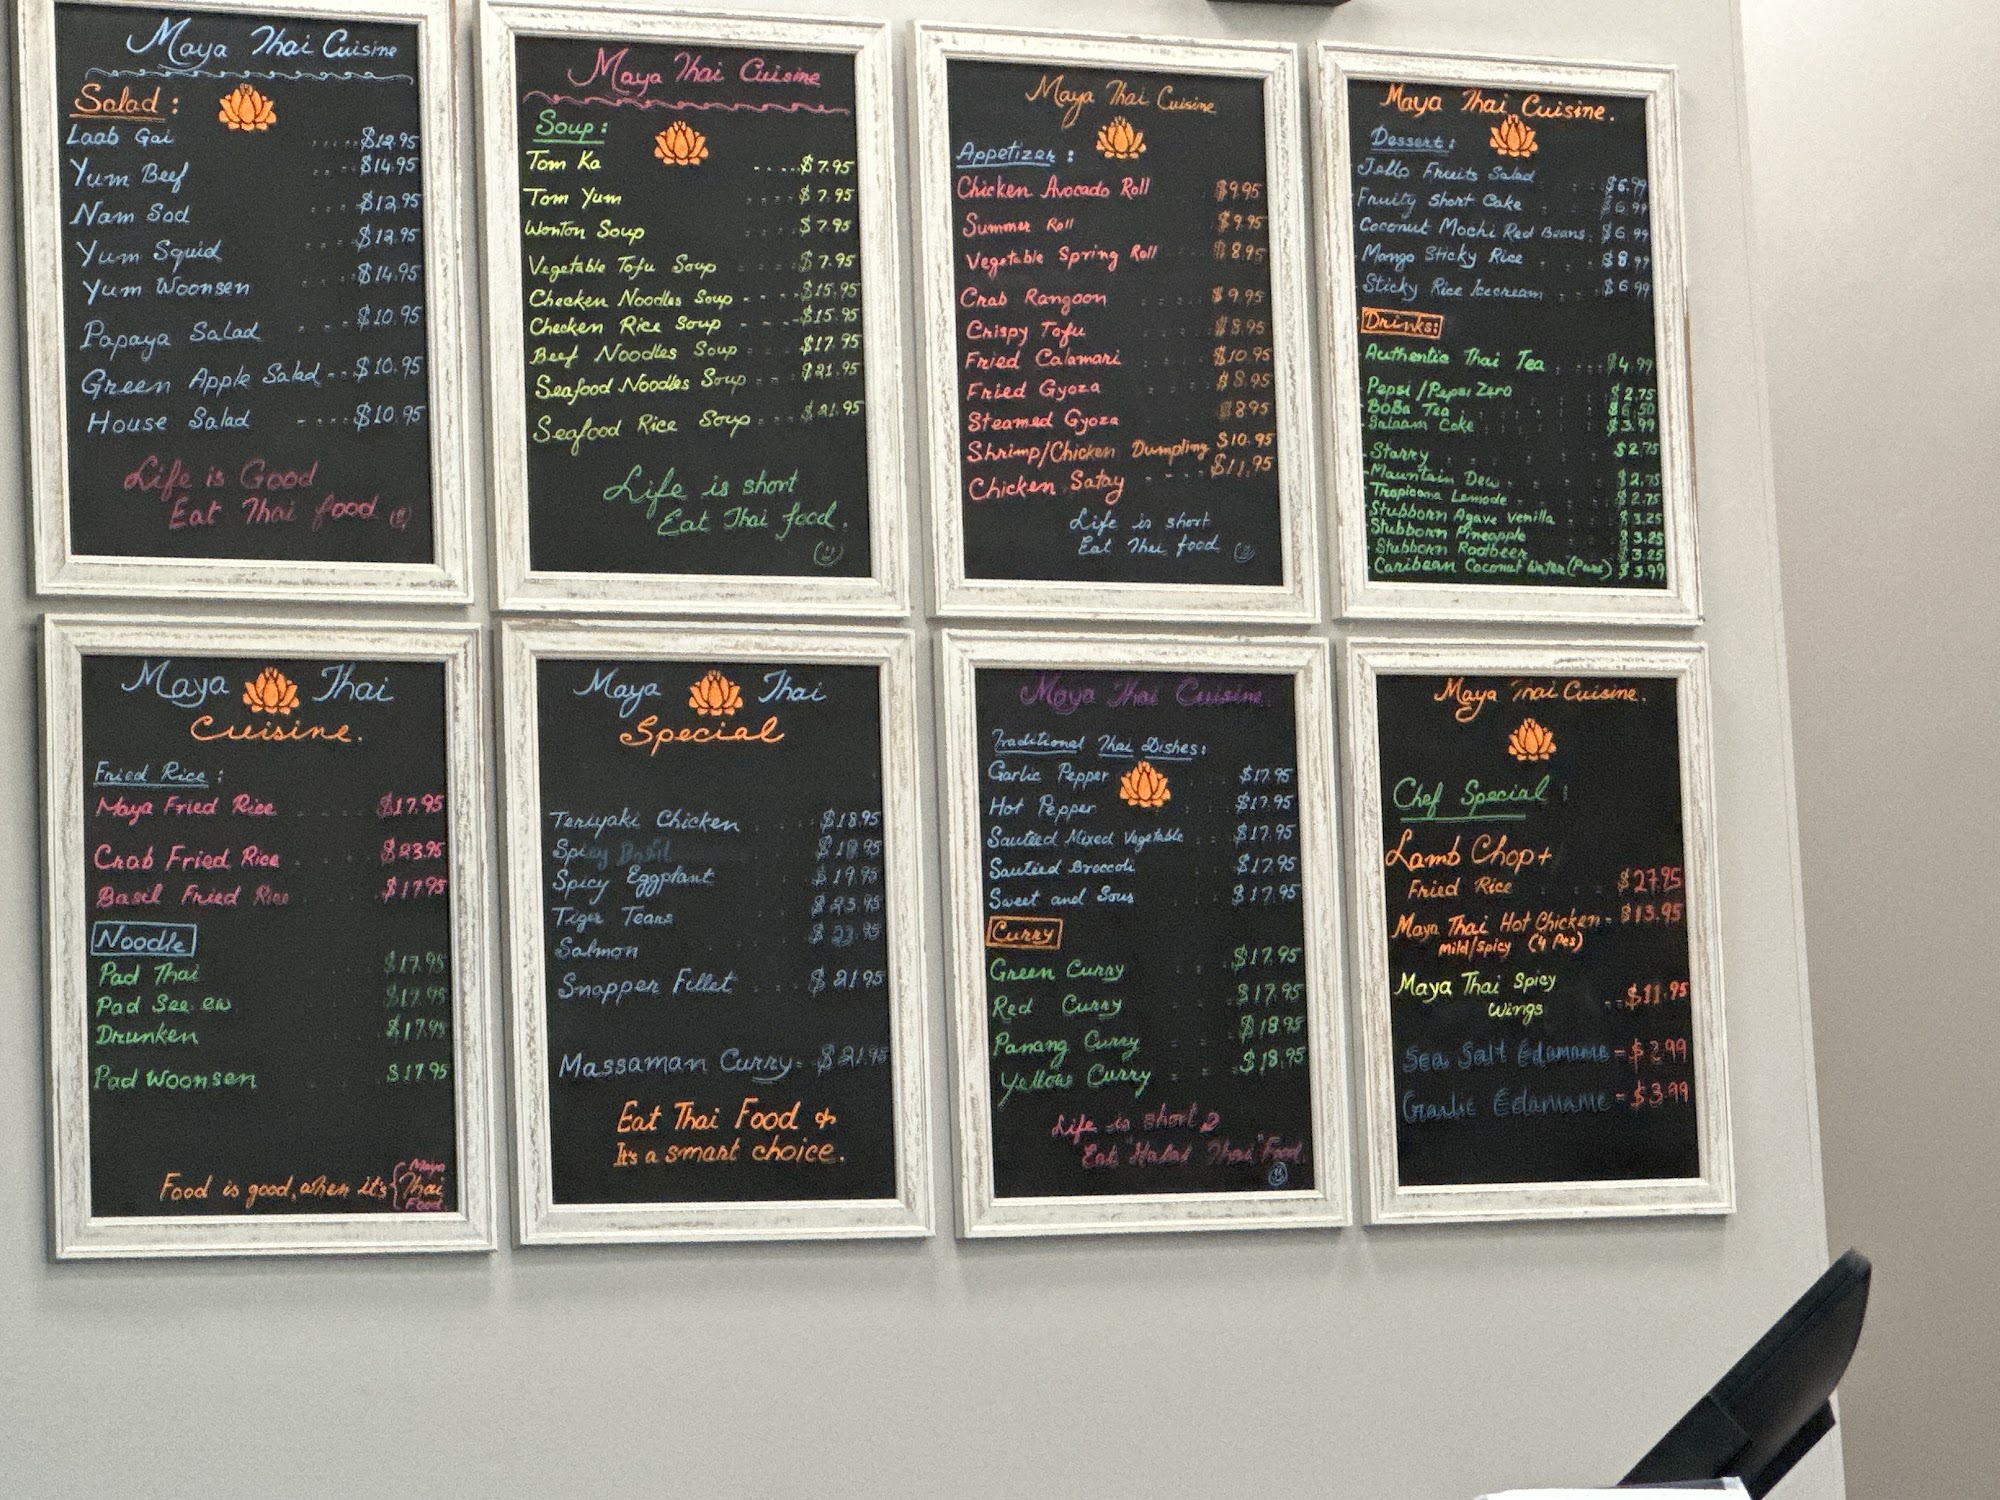 Maya Thai Cuisine
Salad :
Laab Gai .... $12.95
Yum Beef .... $14.95
Nam Sod .... $12.95
Yum Squid .... $12.95
Yum Woonsen .... $14.95
Papaya Salad .... $10.95
Green Apple Salad -- $10.95
House Salad ---- $10.95
Life is Good
Eat Thai food
Maya Thai Cuisine
Soup :
Tom Ka ....$7.95
Tom Yum .... $7.95
Wonton Soup .... $7.95
Vegetable Tofu Soup $7.95
Checken Noodles Soup $15.95
Checken Rice Soup $15.95
Beef Noodles Soup $17.95
Seafood Noodles Soup $21.95
Seafood Rice Soup $21.95
Life is short
Eat Thai food.
Maya Thai Cuisine
Appetizer :
Chicken Avocado Roll $9.95
Summer Roll $9.95
Vegetable Spring Roll $8.95
Crab Rangoon $9.95
Crispy Tofu $8.95
Fried Calamari $10.95
Fried Gyoza $8.95
Steamed Gyoza $8.95
Shrimp/Chicken Dumpling $10.95
Chicken Satay $11.95
Life is short
Eat Thai food
Maya Thai Cuisine.
Dessert:
Jello Fruits Salad $6.99
Fruity Short Cake $6.99
Coconut Mochi Red Beans. $6.99
Mango Sticky Rice $8.99
Sticky Rice Icecream $6.99
Drinks:
Authentic Thai Tea $4.99
Pepsi/Pepsi Zero $2.75
BoBa Tea $6.50
Salaam Coke $3.99
Starry $2.75
Mauntain Dew $2.75
Tropicana Lemode $2.75
Stubborn Agave Venilla $3.25
Stubborn Pineapple $3.25
Stubborn Rootbeer $3.25
Caribean Coconut Water (Pure) $3.99
Maya Thai
Cuisine.
Fried Rice :
Maya Fried Rice $17.95
Crab Fried Rice $23.95
Basil Fried Rice $17.95
Noodle
Pad Thai $17.95
Pad See ew $17.95
Drunken $17.95
Pad Woonsen $17.95
Food is good, when it's Maya Thai Food.
Maya Thai
Special
Teriyaki Chicken $18.95
Spicy Basil $18.95
Spicy Eggplant $19.95
Tiger Tears $23.95
Salmon $23.95
Snapper Fillet $21.95
Massaman Curry- $21.95
Eat Thai Food &
It's a smart choice.
Maya Thai Cuisine.
Traditional Thai Dishes:
Garlic Pepper $17.95
Hot Pepper $17.95
Sautéed Mixed Vegetable $17.95
Sautéed Broccoli $17.95
Sweet and Sour $17.95
Curry
Green Curry $17.95
Red Curry $17.95
Panang Curry $18.95
Yellow Curry $18.95
Life is short
Eat "Halal Thai" Food.
Maya Thai Cuisine.
Chef Special :
Lamb Chop+
Fried Rice $27.95
Maya Thai Hot Chicken - $13.95
Mild/Spicy (4 Pcs)
Maya Thai Spicy
Wings $11.95
Sea Salt Edamame - $2.99
Garlic Edamame - $3.99